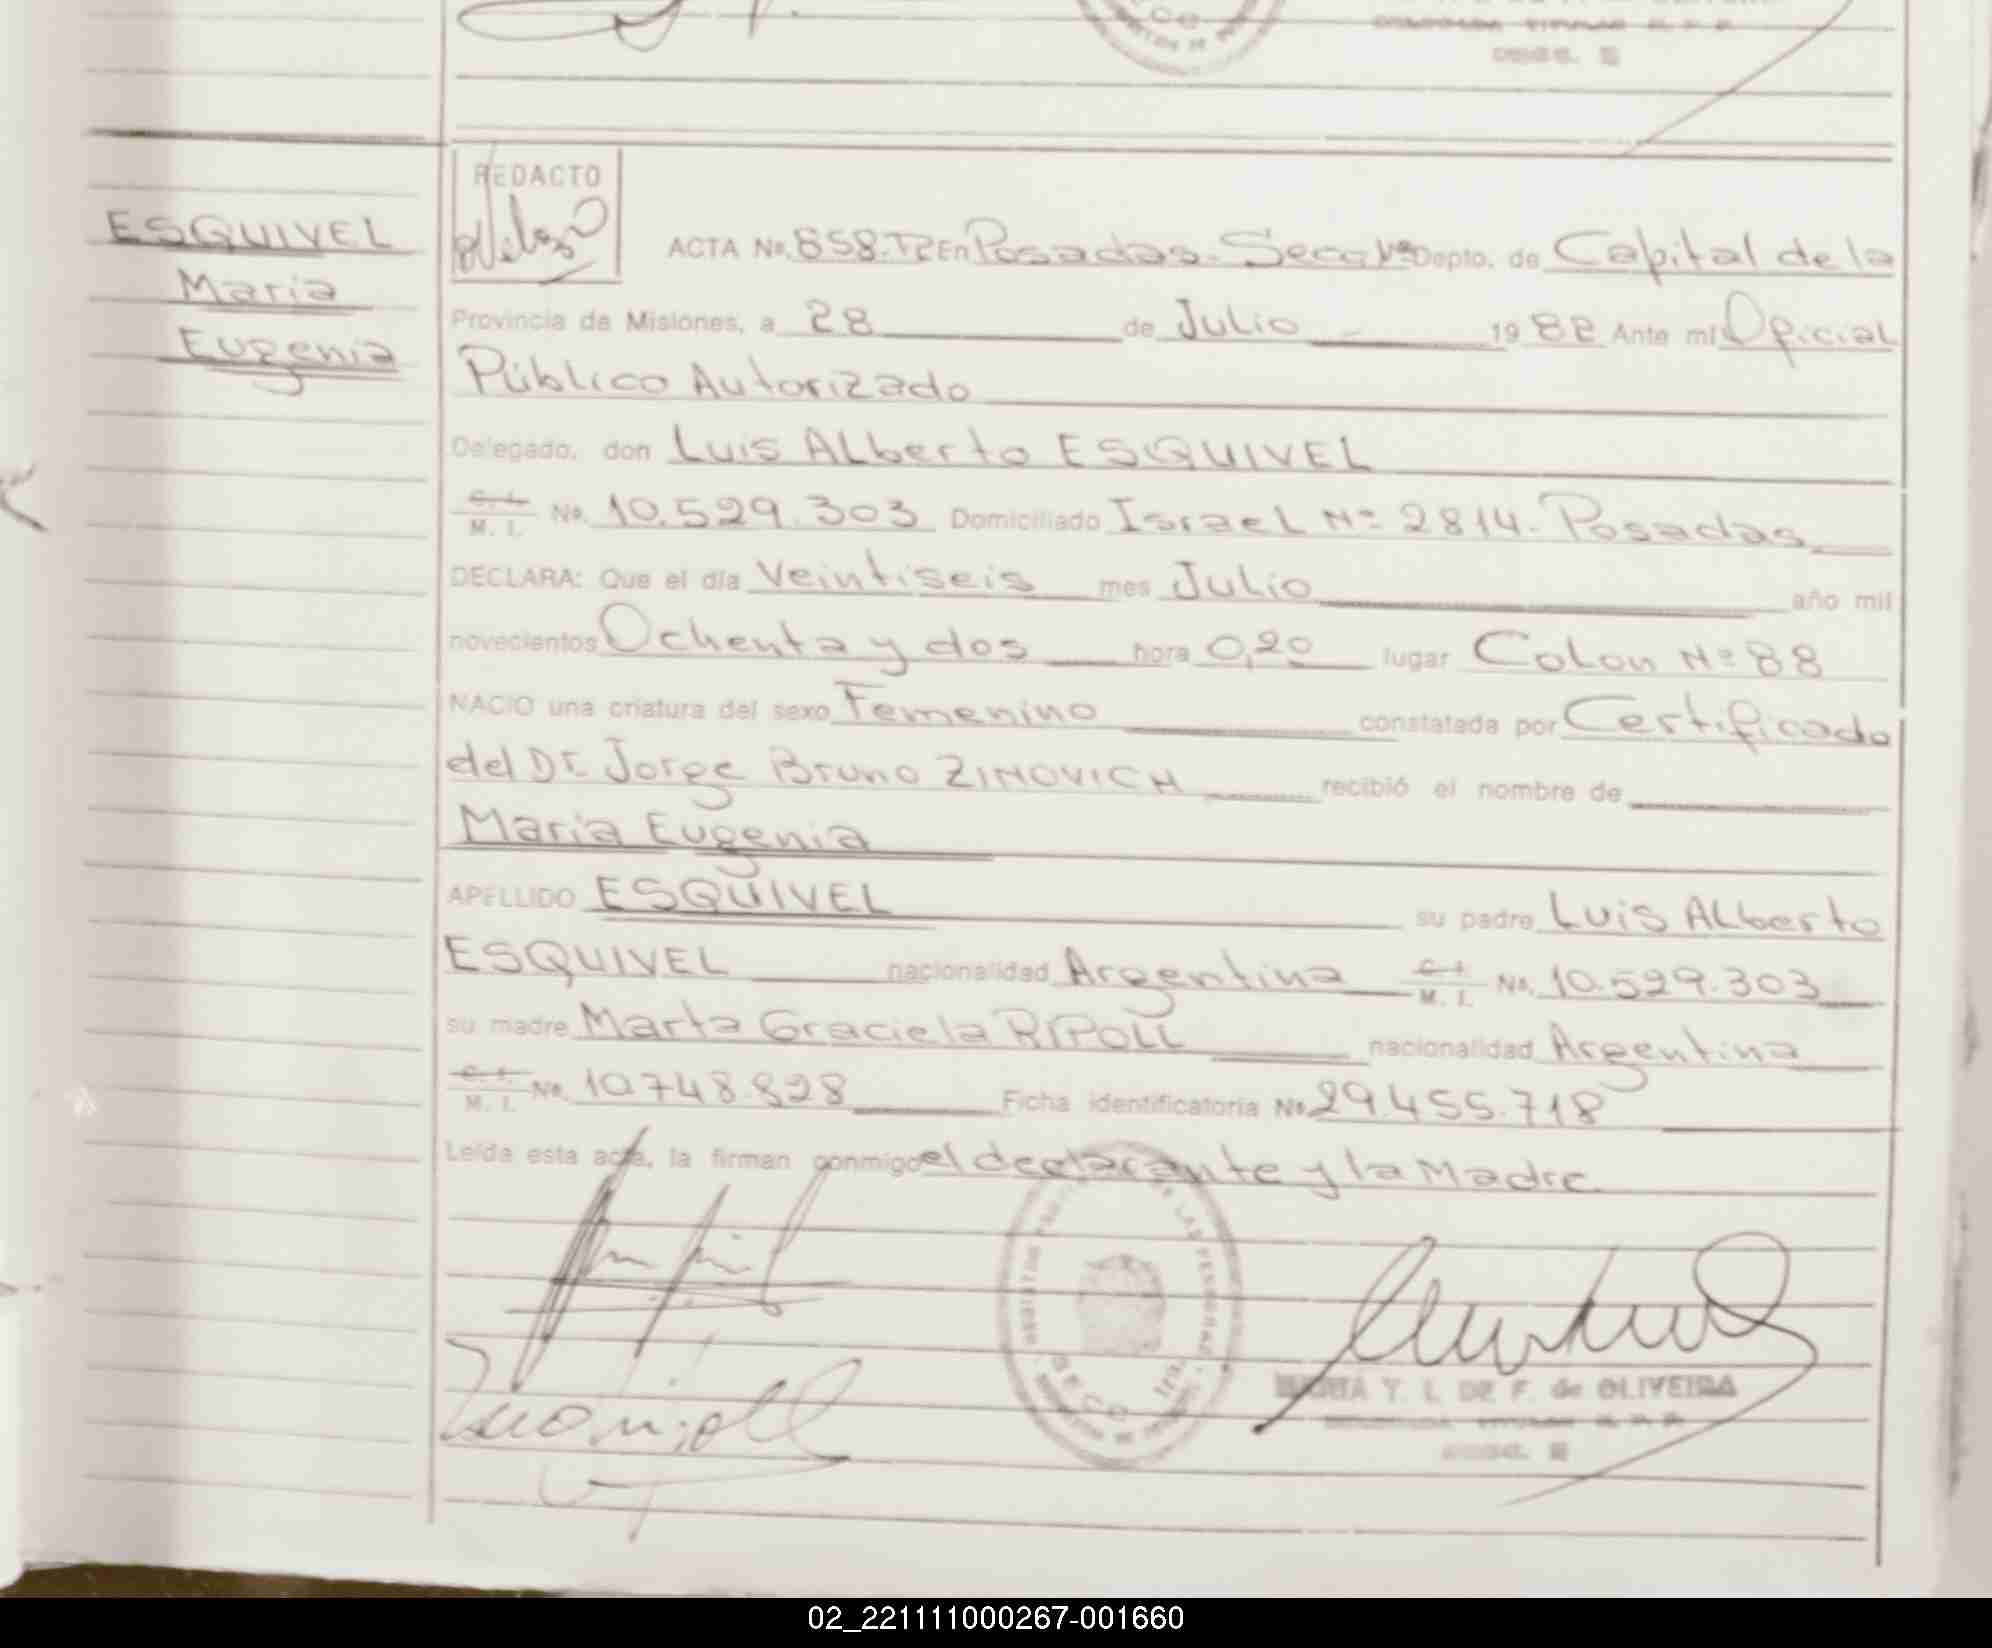 REDACTO
ESQUIVEL
Maria
Eugenia
ACTA No. 658. T2 En Posadas. Secc 1ª Depto. de Capital de la
Provincia de Misiones, a 28 de Julio 1982 Ante mi Oficial
Público Autorizado
Delegado, don Luis ALberto ESQUIVEL
C. I. M. I. No. 10.529.303 Domiciliado IsraeL Nº 2814. Posadas
DECLARA: Que el día Veintiseis mes Julio año mil
novecientos Ochenta y dos hora 0,20 lugar Colon Nº 88
NACIO una criatura del sexo Femenino constatada por Certificado
del Dr. Jorge Bruno ZINOVICH recibió el nombre de
Maria Eugenia
APELLIDO ESQUIVEL su padre Luis ALberto
ESQUIVEL nacionalidad Argentina C. I. M. I. No. 10.529.303
su madre Marta Graciela RIPOLL nacionalidad Argentina
C. I. M. I. No. 10.748.828 Ficha identificatoria No. 29.455.718
Leída esta acta, la firman conmigo el declarante y la Madre
Y. L. DE F. de OLIVEIRA
02_221111000267-001660